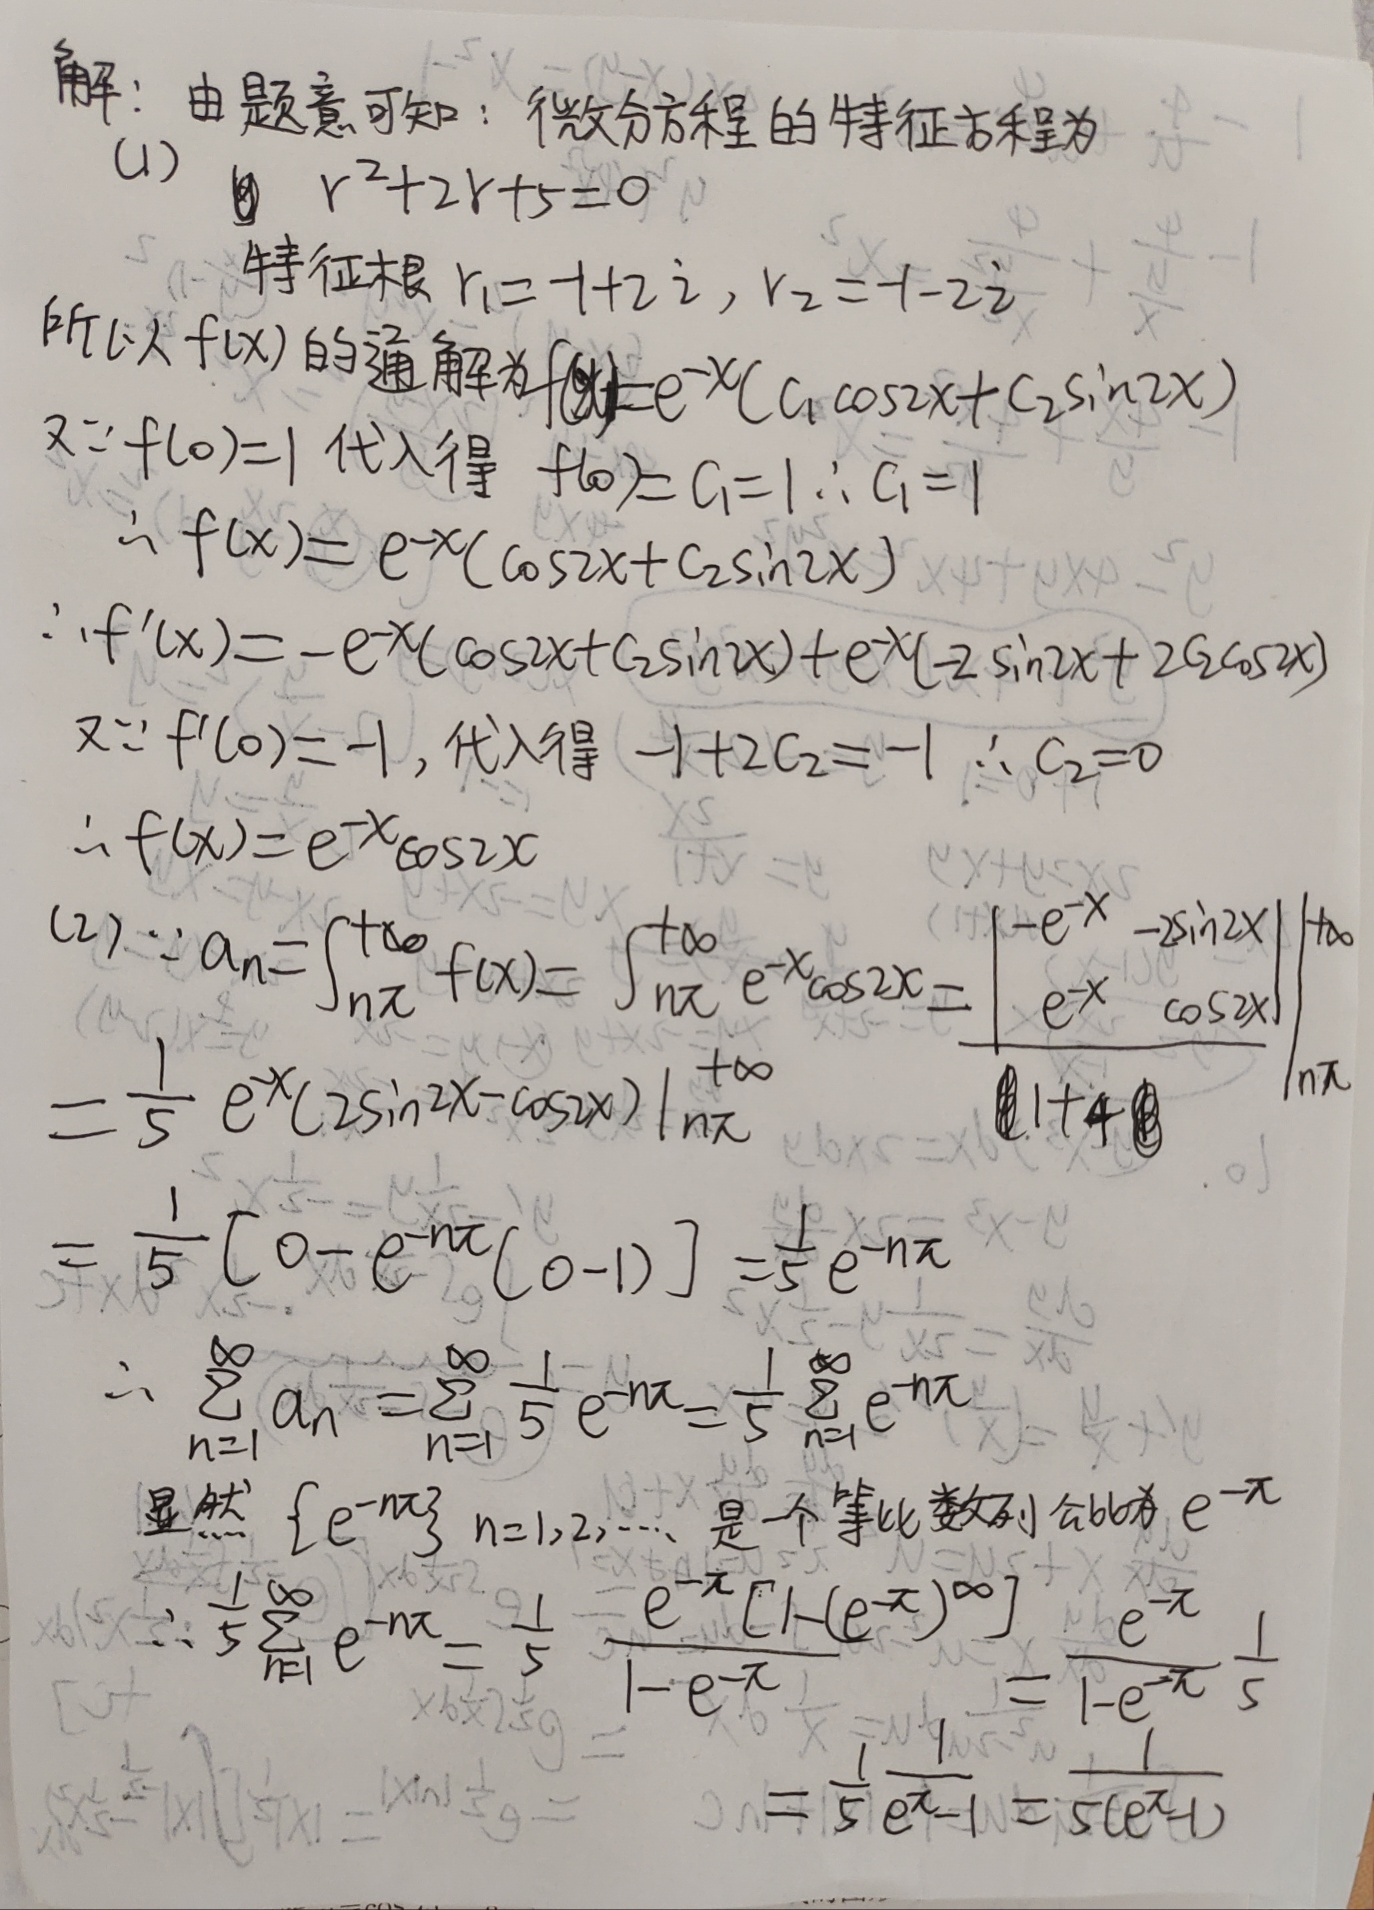 解：由题意可知：微分方程的特征方程为
(1) r²+2r+5=0
特征根 r₁=-1+2i, r₂=-1-2i
所以f(x)的通解为f(x)=e^{-x}(C₁cos2x+C₂sin2x)
又∵f(0)=1 代入得 f(0)=C₁=1 ∴C₁=1
∴f(x)=e^{-x}(cos2x+C₂sin2x)
∴f'(x)=-e^{-x}(cos2x+C₂sin2x)+e^{-x}(-2sin2x+2C₂cos2x)
又∵f'(0)=-1,代入得 -1+2C₂=-1 ∴C₂=0
∴f(x)=e^{-x}cos2x
(2)∵aₙ=∫_{nπ}^{+∞}f(x)=∫_{nπ}^{+∞}e^{-x}cos2x=\frac{\begin{vmatrix}-e^{-x} & -2sin2x\\ e^{-x} & cos2x\end{vmatrix}}{1+4}|_{nπ}^{+∞}
=\frac{1}{5}e^{-x}(2sin2x-cos2x)|_{nπ}^{+∞}
=\frac{1}{5}[0-e^{-nπ}(0-1)]=\frac{1}{5}e^{-nπ}
∴\sum_{n=1}^{∞}aₙ=\sum_{n=1}^{∞}\frac{1}{5}e^{-nπ}=\frac{1}{5}\sum_{n=1}^{∞}e^{-nπ}
显然{e^{-nπ}} n=1,2,… 是一个等比数列公比为e^{-π}
∴\frac{1}{5}\sum_{n=1}^{∞}e^{-nπ}=\frac{1}{5}\frac{e^{-π}[1-(e^{-π})^{∞}]}{1-e^{-π}}=\frac{e^{-π}}{1-e^{-π}}\frac{1}{5}
=\frac{1}{5}\frac{1}{e^{π}-1}=\frac{1}{5(e^{π}-1)}